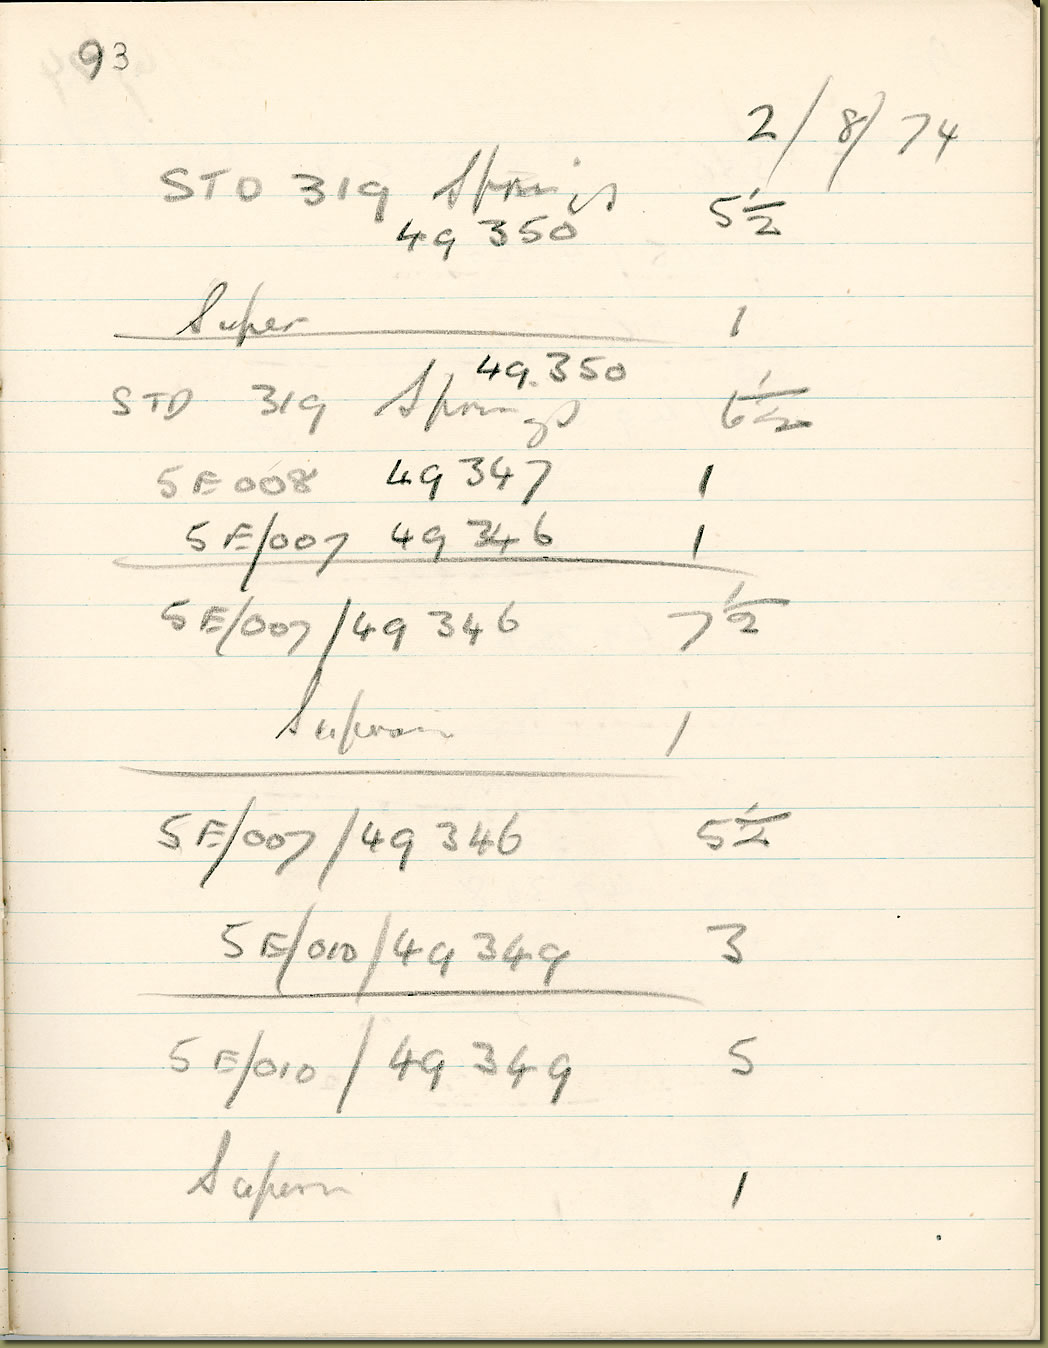 93
2/8/74
STD 319 Springs 5½
49350
Super 1
49.350
STD 319 Springs 6½
5E008 49347 1
5E/007 49346 1
5E/007/49346 7½
Superv 1
5E/007/49346 5½
5E/010/49349 3
5E/010/49349 5
Superv 1